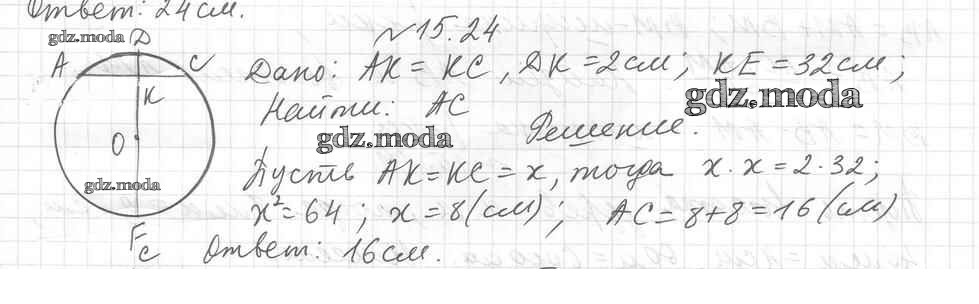 Ответ: 24 см.
№15.24
gdz.moda D
A C Дано: AK = KC, DK = 2 см; KE = 32 см;
K Найти: AC gdz.moda
gdz.moda Решение.
O
gdz.moda Пусть AK = KC = x, тогда x · x = 2 · 32;
x² = 64; x = 8 (см); AC = 8 + 8 = 16 (см)
Ответ: 16 см.